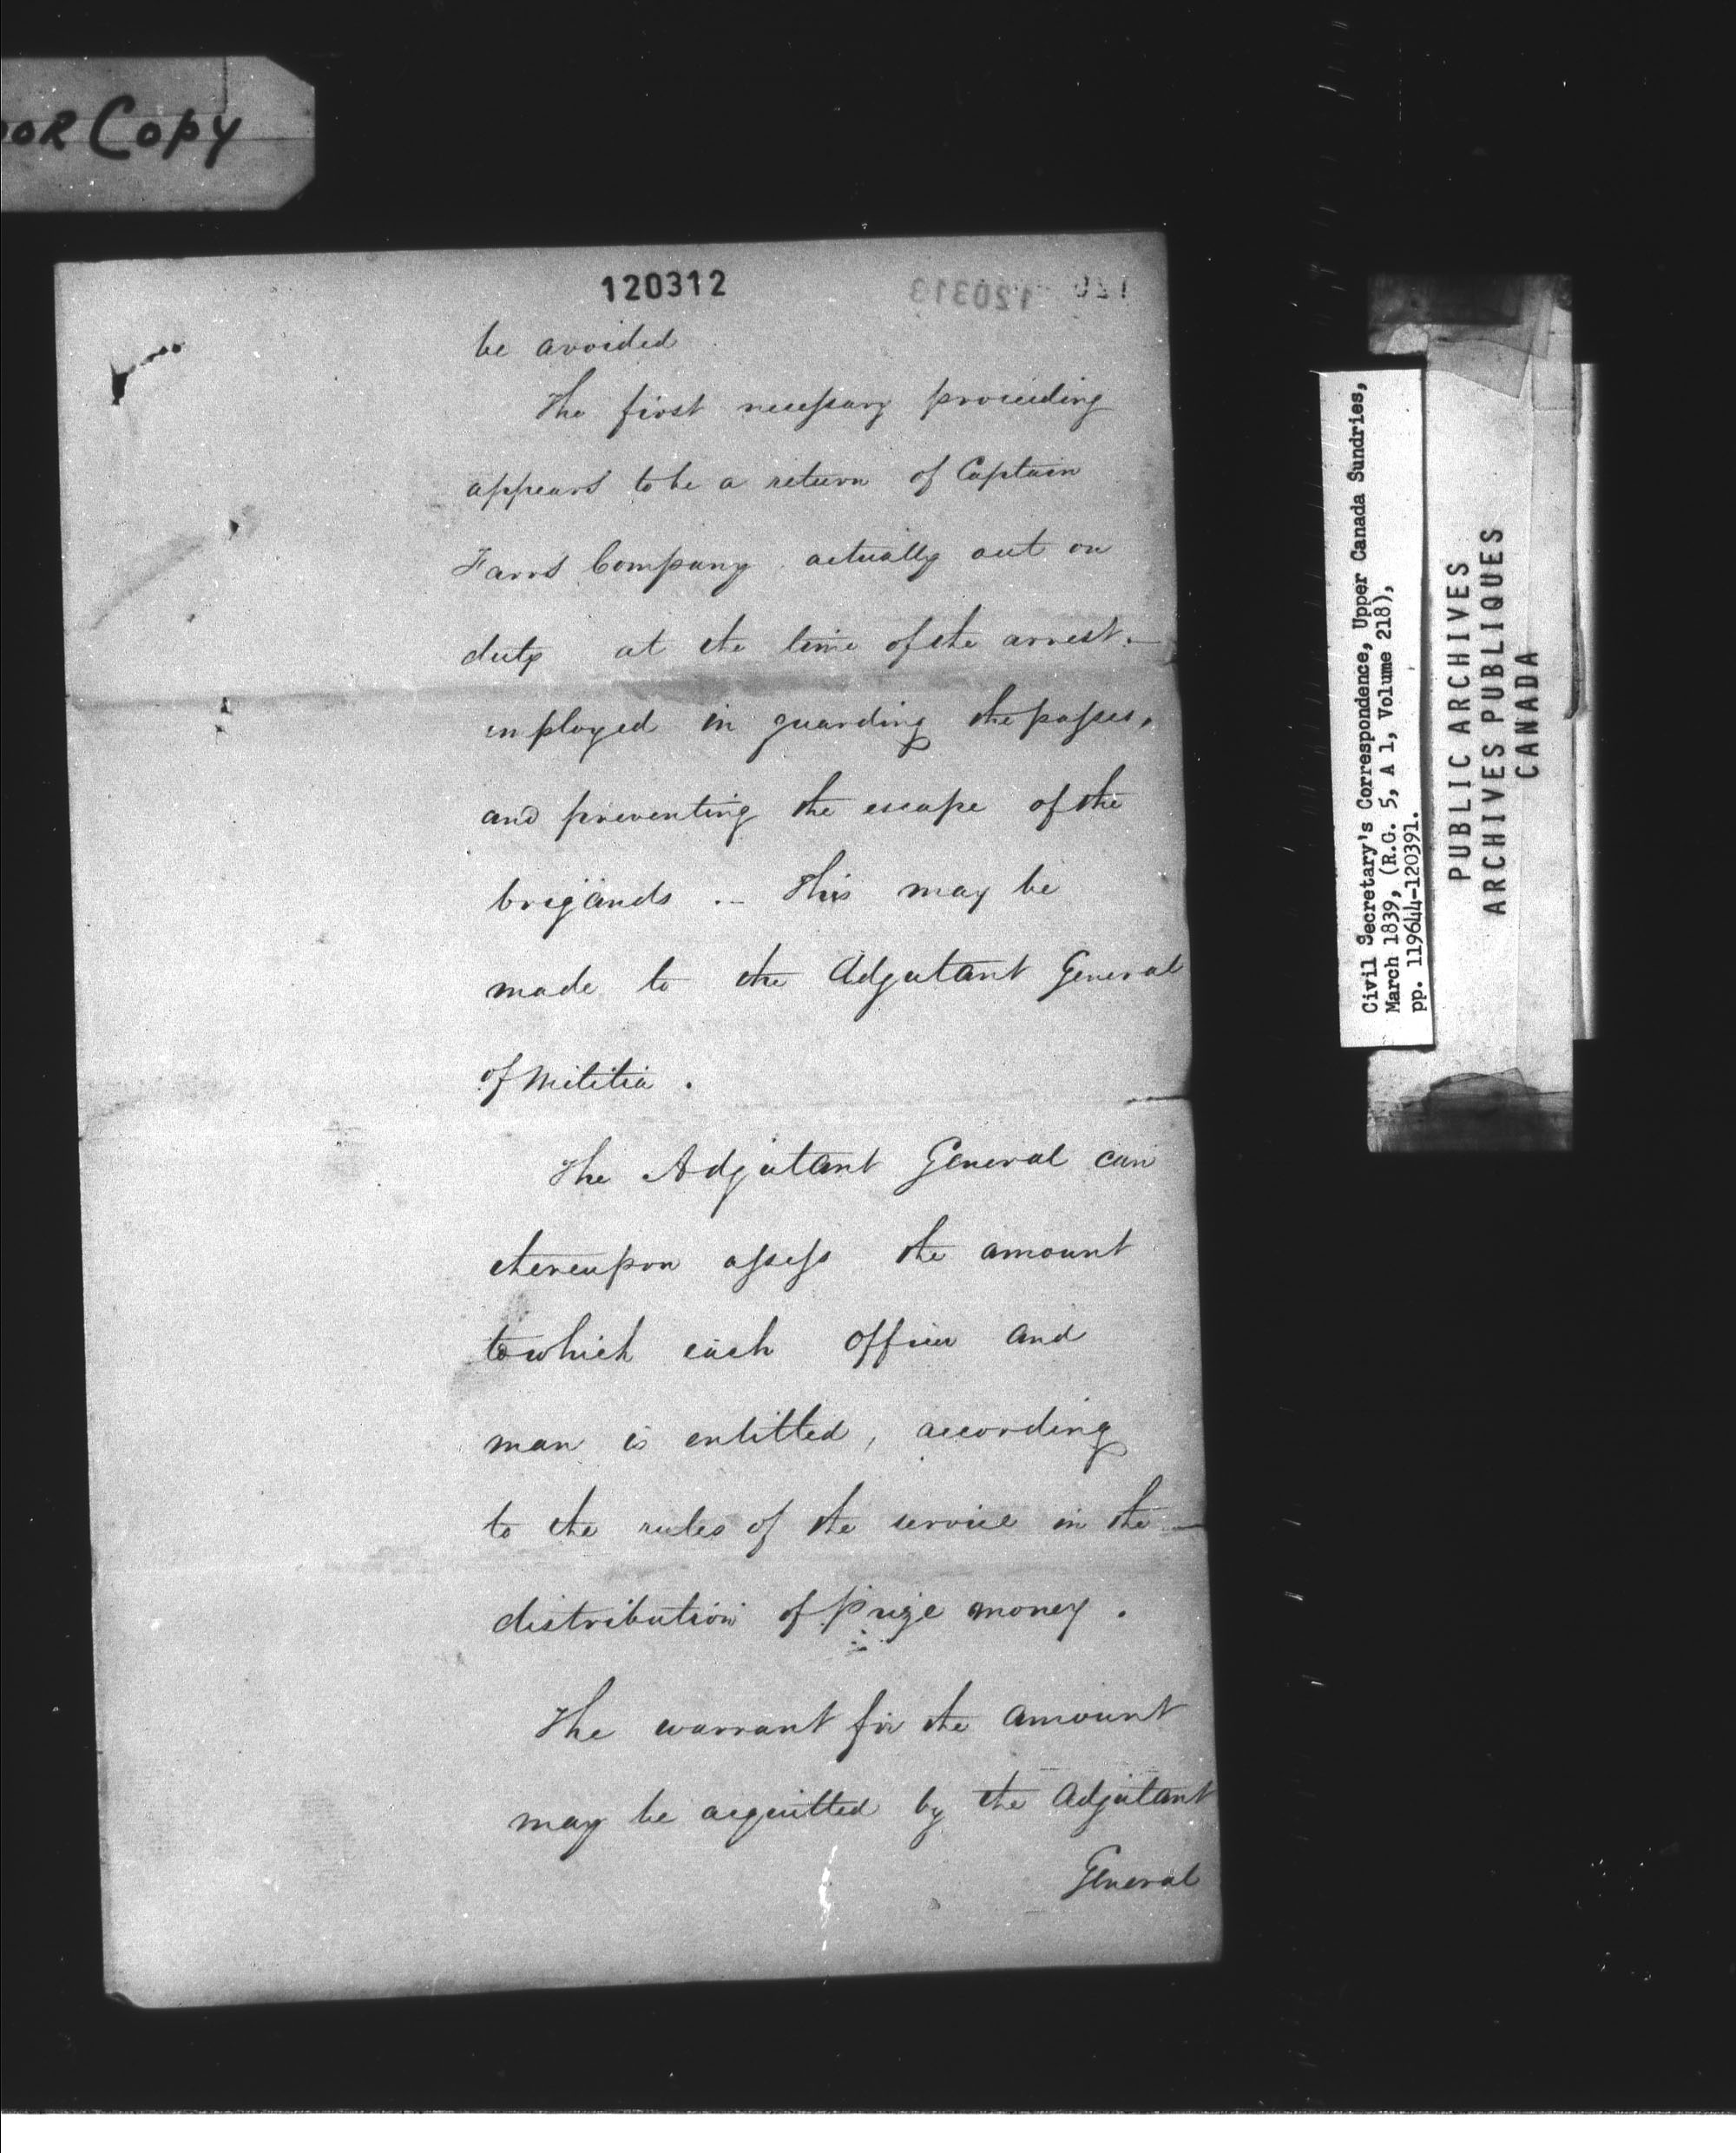 oor Copy
120312
120313
120
be avoided
The first necessary proceeding
appears to be a return of Captain
Farrs Company actually out on
duty at the time of the arrest.
employed in guarding the passes,
and preventing the escape of the
brigands .- This may be
made to the Adjutant General
of Militia.
The Adjutant General can
thereupon assess the amount
to which each officer and
man is entitled, according
to the rules of the service in the
distribution of prize money.
The warrant for the amount
may be acquitted by the Adjutant
General
Civil Secretary's Correspondence, Upper Canada Sundries,
March 1839, (R.G. 5, A 1, Volume 218),
pp. 119644-120391.
PUBLIC ARCHIVES
ARCHIVES PUBLIQUES
CANADA